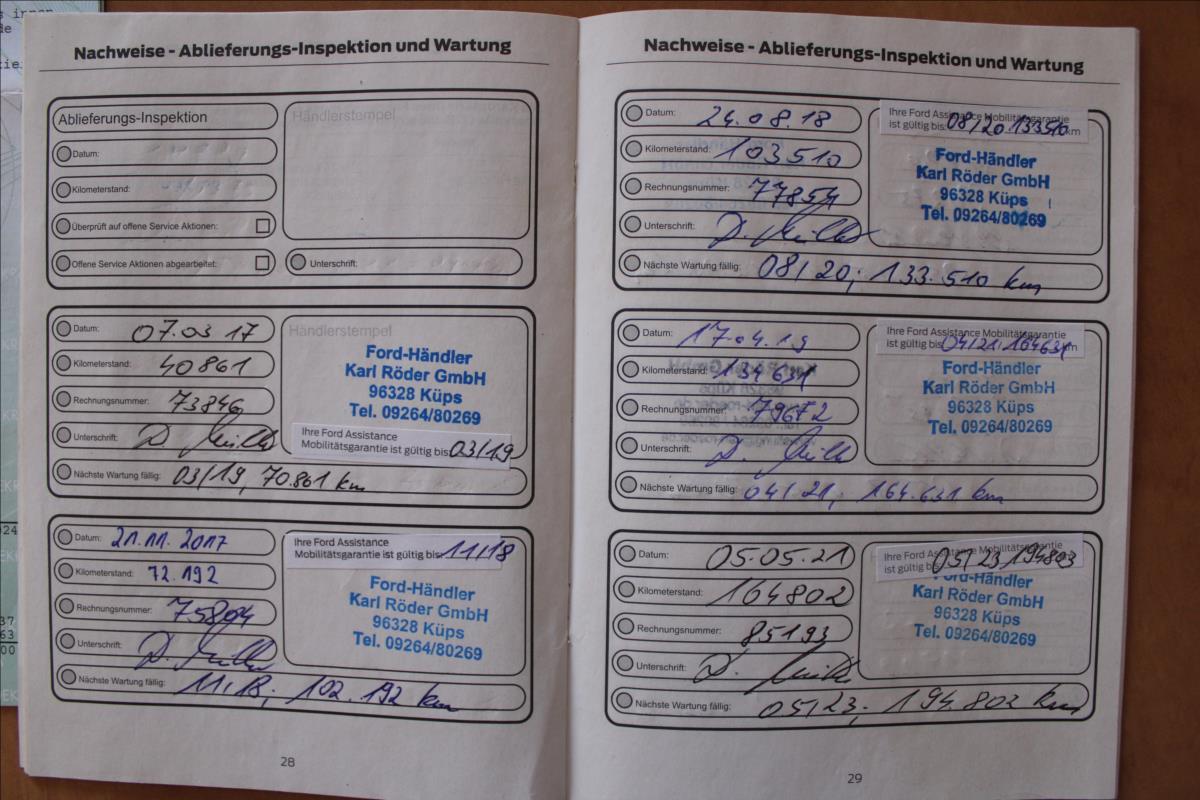 Nachweise - Ablieferungs-Inspektion und Wartung
Ablieferungs-Inspektion
Händlerstempel
Datum:
Kilometerstand:
Überprüft auf offene Service Aktionen:
Offene Service Aktionen abgearbeitet:
Unterschrift:
Datum: 07.03 17
Händlerstempel
Kilometerstand: 40861
Rechnungsnummer: 73846
Unterschrift:
Ford-Händler
Karl Röder GmbH
96328 Küps
Tel. 09264/80269
Ihre Ford Assistance
Mobilitätsgarantie ist gültig bis: 03/19
Nächste Wartung fällig: 03/19, 70.861 km
Datum: 21.11.2017
Kilometerstand: 72.192
Rechnungsnummer: 75804
Unterschrift:
Ihre Ford Assistance
Mobilitätsgarantie ist gültig bis 11/18
Ford-Händler
Karl Röder GmbH
96328 Küps
Tel. 09264/80269
Nächste Wartung fällig: 11.18, 102.192 km
28
Nachweise - Ablieferungs-Inspektion und Wartung
Datum: 24.08.18
Kilometerstand: 103510
Rechnungsnummer: 77854
Unterschrift:
Ihre Ford Assistance Mobilitätsgarantie
ist gültig bis: 08/20 133510 km
Ford-Händler
Karl Röder GmbH
96328 Küps
Tel. 09264/80269
Nächste Wartung fällig: 08/20, 133.510 km
Datum: 17.04.19
Kilometerstand: 134631
Rechnungsnummer: 79672
Unterschrift:
Ihre Ford Assistance Mobilitätsgarantie
ist gültig bis: 04/21, 164631 km
Ford-Händler
Karl Röder GmbH
96328 Küps
Tel. 09264/80269
Nächste Wartung fällig: 04/21, 164.631 km
Datum: 05.05.21
Kilometerstand: 164802
Rechnungsnummer: 85193
Unterschrift:
Ihre Ford Assistance Mobilitätsgarantie
ist gültig bis: 05/23 194803
Ford-Händler
Karl Röder GmbH
96328 Küps
Tel. 09264/80269
Nächste Wartung fällig: 05/23, 194.802 km
29